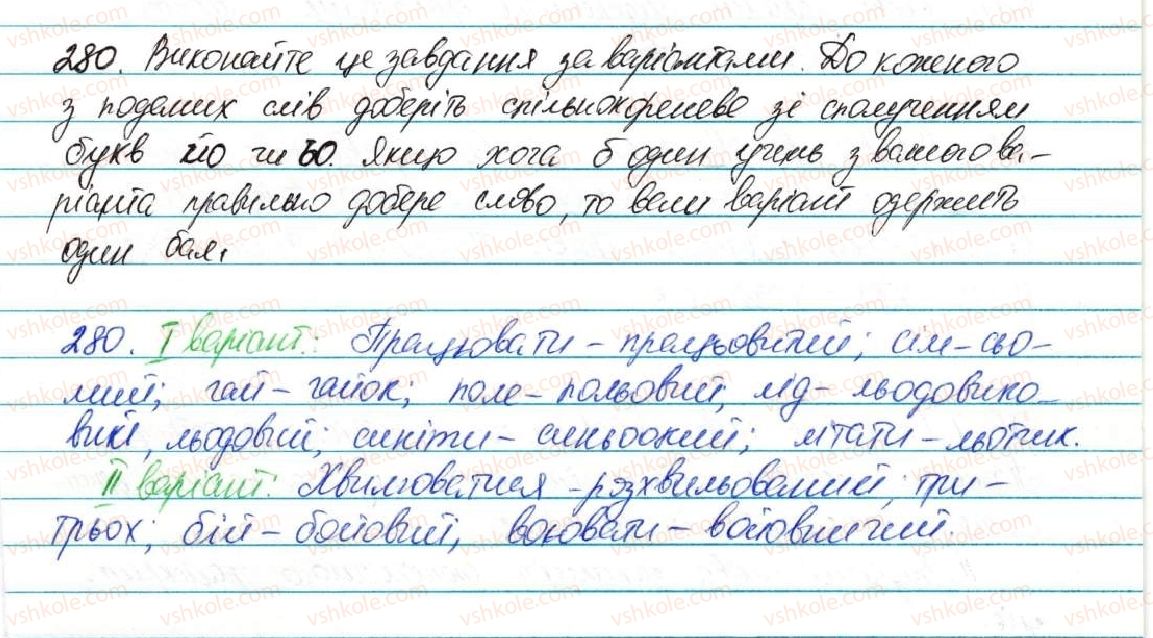 280. Виконайте це завдання за варіантами. До кожного
з поданих слів доберіть спільнокореневе зі сполученням
букв йо чи ьо. Якщо хоча б один учень з вашого ва-
ріанта правильно добере слово, то весь варіант одержить
один бал.
280. І варіант: Працювати – працьовитий; сім – сьо-
мий; гай – гайок; поле – польовий, лід – льодовико-
вий, льодовий; синіти – синьоокий; літати – льотчик.
ІІ варіант: Хвилюватися – розхвильований; три –
трьох; бій – бойовий, воювати – войовничий.